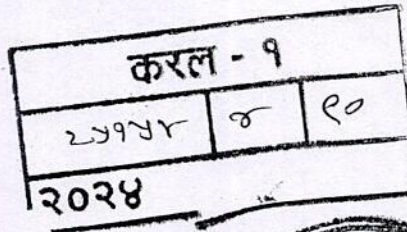 करल - १
२५१५४ ४ ९०
२०२४